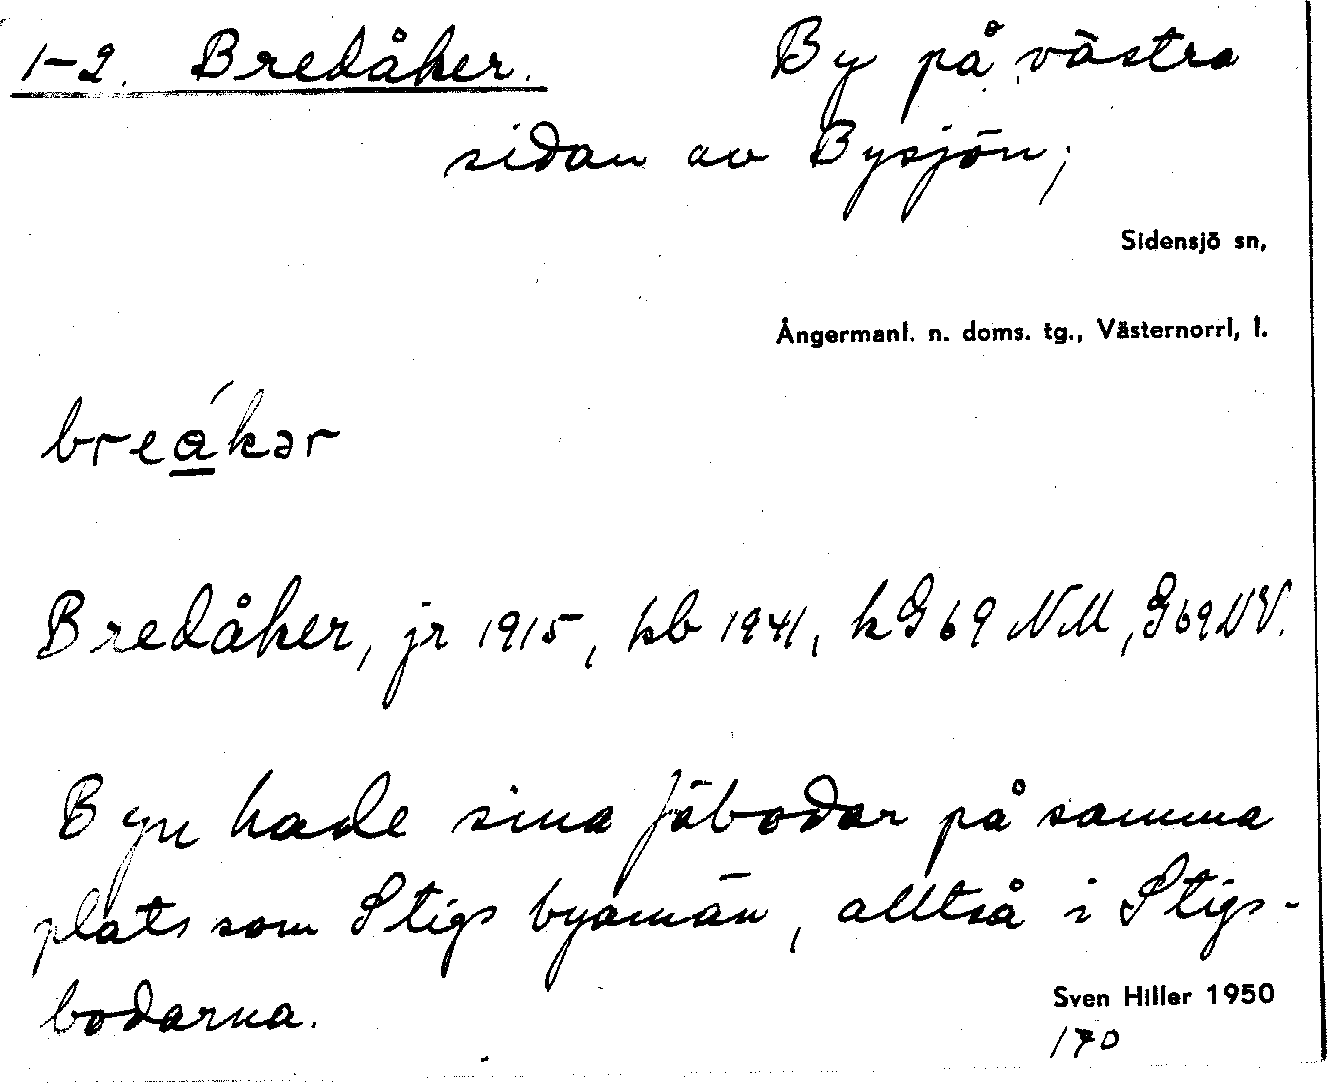 1-2. Bredåker. By på västra
sidan av Bysjön;
Sidensjö sn,
Ångermanl. n. doms. tg., Västernorrl, l.
breákər
Bredåker, jr 1915, kb 1941, k G 69 NM, G 69 NV.
Byn hade sina fäbodar på samma
plats som Stigs byamän, alltså i Stigs-
bodarna.
Sven Hiller 1950
170